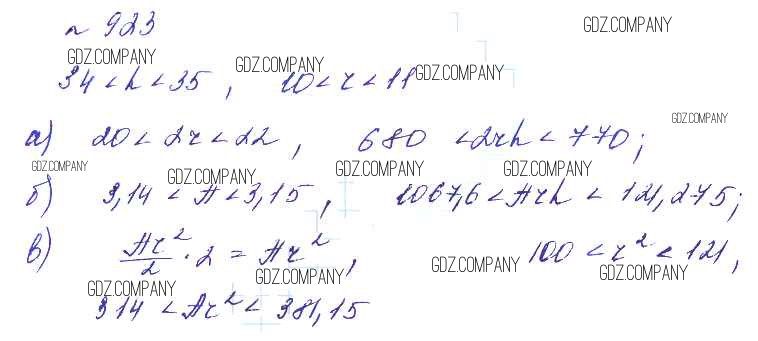 № 923 GDZ.COMPANY
GDZ.COMPANY GDZ.COMPANY GDZ.COMPANY
34 < h < 35, 10 < r < 11
GDZ.COMPANY
а) 20 < 2r < 22, 680 < 2rh < 770;
GDZ.COMPANY GDZ.COMPANY GDZ.COMPANY GDZ.COMPANY
б) 3,14 < π < 3,15, 1067,6 < πrh < 121,275;
в) πr²/2 · 2 = πr², 100 < r² < 121,
GDZ.COMPANY GDZ.COMPANY GDZ.COMPANY GDZ.COMPANY
314 < πr² < 381,15